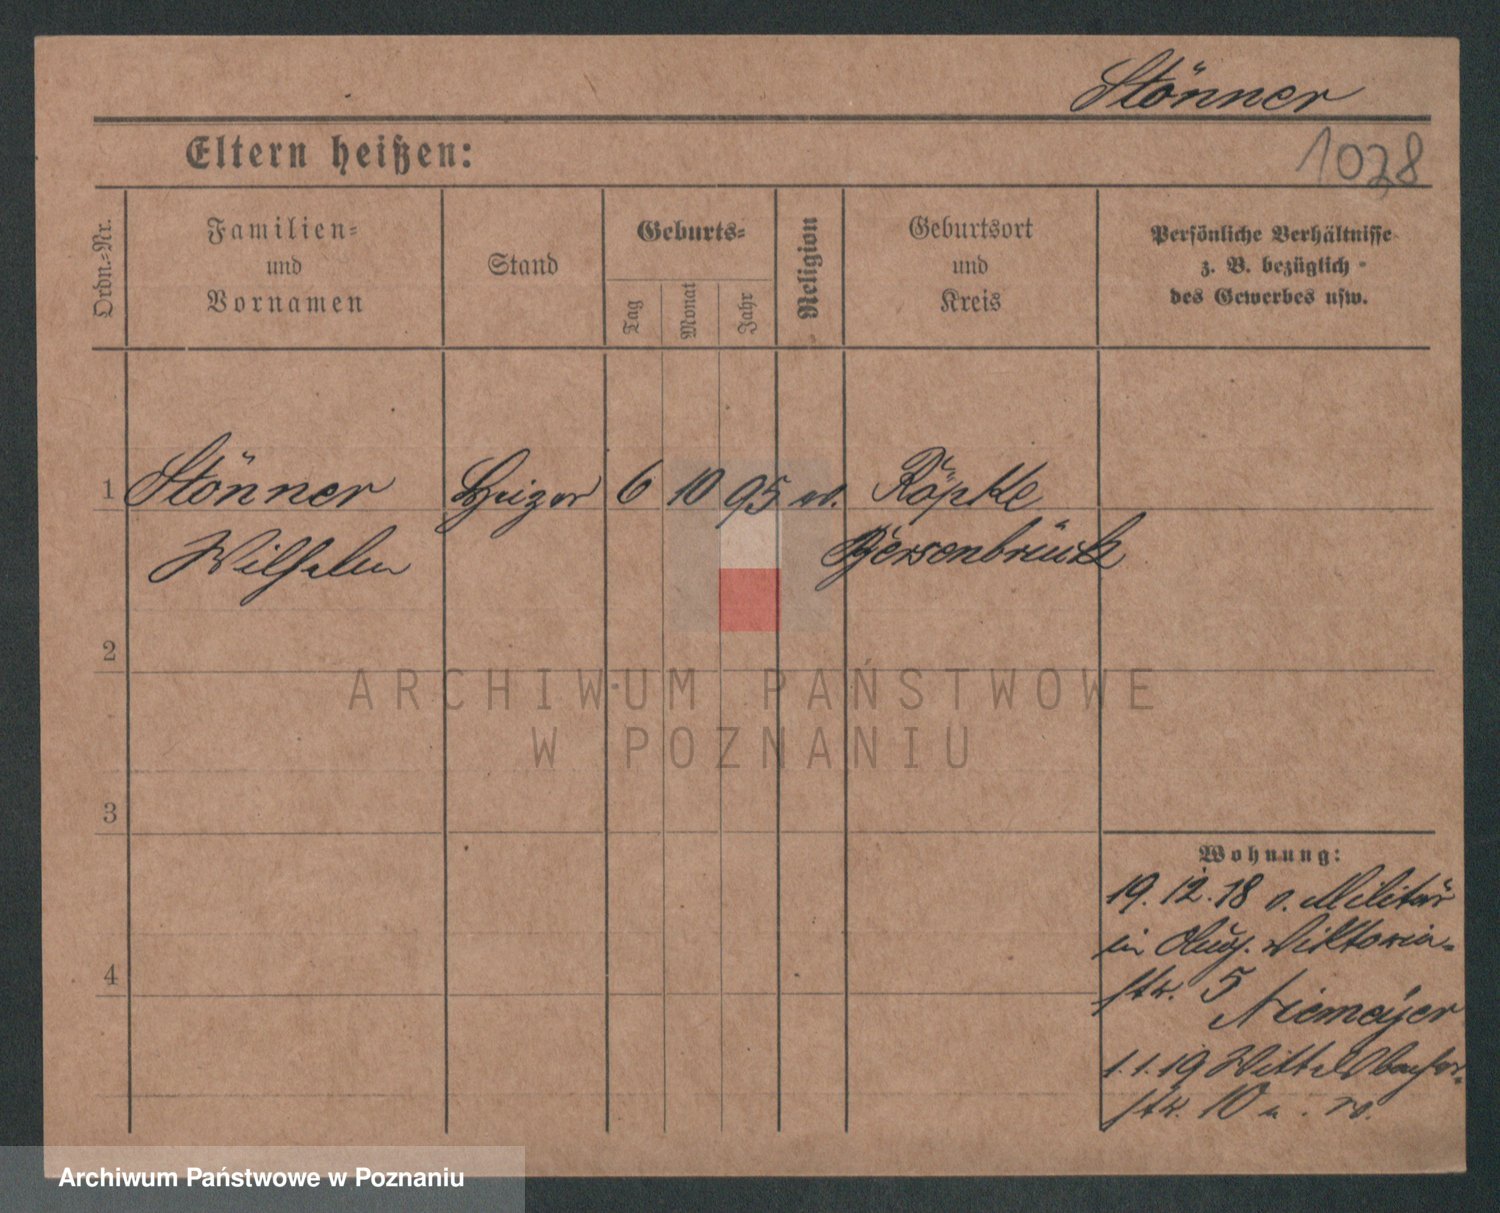 Stönner
Eltern heißen:
1028
Ordn.-Nr.
Familien-
und
Vornamen
Stand
Geburts-
Tag
Monat
Jahr
Religion
Geburtsort
und
Kreis
Persönliche Verhältnisse
z. B. bezüglich
des Gewerbes usw.
1 Stönner Heizer 6 10 95 ev. Röpke
Wilhelm Bersenbrück
2
ARCHIWUM PAŃSTWOWE
W POZNANIU
3
Wohnung:
19.12.18 v. Militär
in Aug. Viktoria-
4
str. 5
Niemeyer
1.1.19 Wittelsbacher-
str. 10
Archiwum Państwowe w Poznaniu